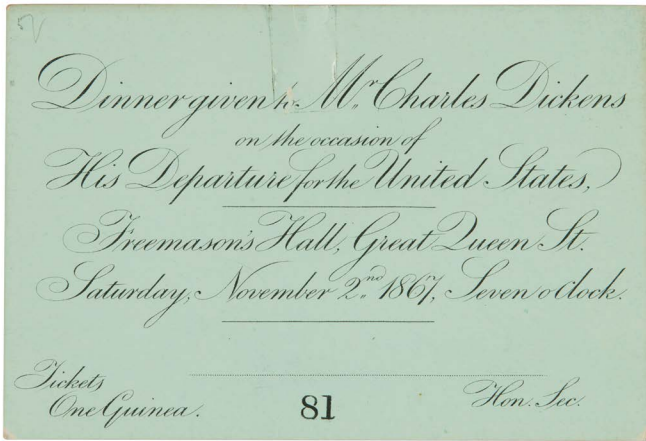 Dinner given to Mr. Charles Dickens
on the occasion of
His Departure for the United States,
Freemason's Hall, Great Queen St.
Saturday, November 2nd. 1867, Seven o'Clock.
Tickets
One Guinea.
81
Hon. Sec.